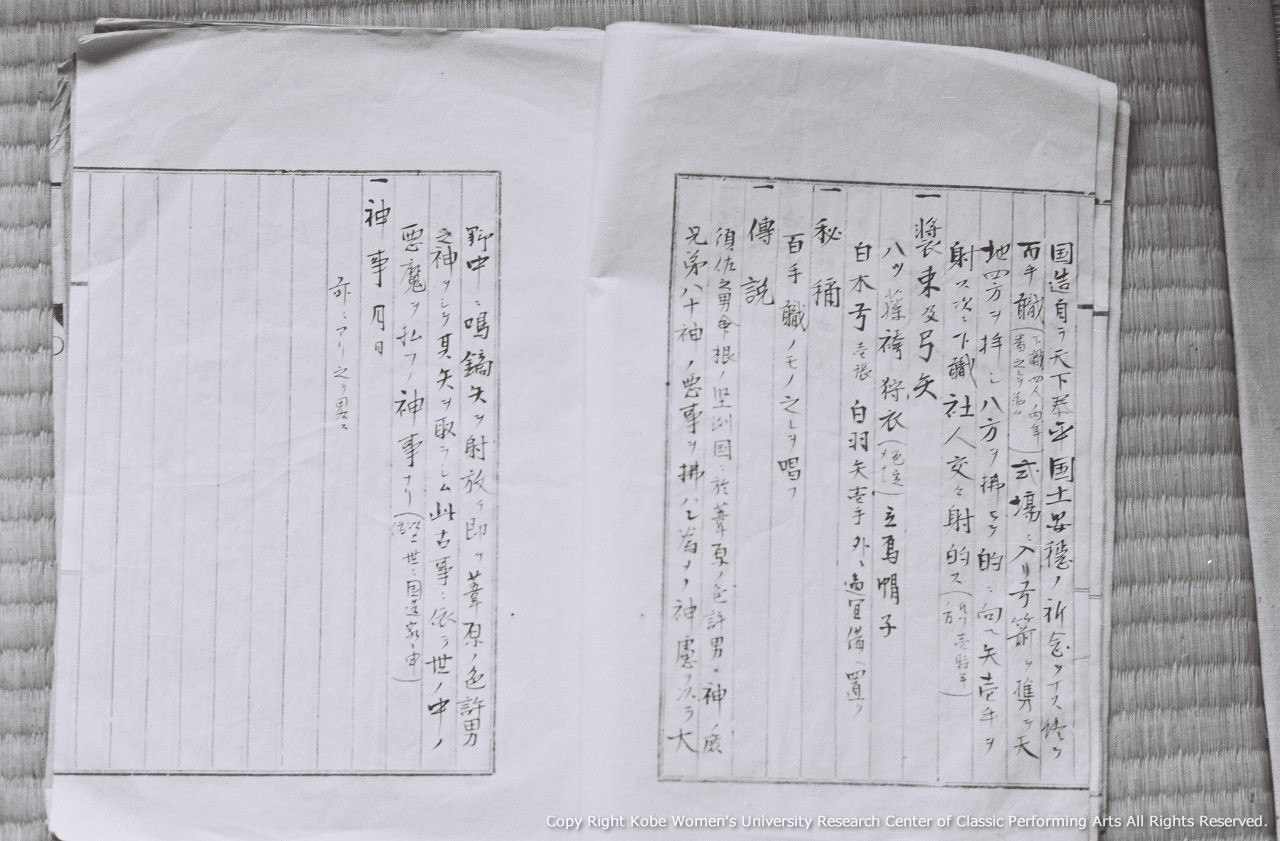 国造自ラ天下泰平国土安穏ノ祈念ヲナス終ッ
百手職(下職四人向年番之レヲ受ク)式場ニ入リ弓箭ヲ携ヘテ天
地四方ヲ拝シ八方ヲ拂ヒテ的ニ向ヘ矢壱手ヲ
射ス次ニ下職社人交々射的ス
一 装束及弓矢
八ッ藤袴狩衣(色定)立烏帽子
白木弓壱張 白羽矢壱手外ニ適宜備ヘ置ク
一 秘稱
百手職ノモノ之レヲ唱フ
一 傳説
須佐之男命根ノ堅洲国ニ於葦原ノ色許男ノ神ノ庶
兄弟八十神ノ悪事ヲ拂ハレ ノ神慮ヲ以ラ大
野中ニ鳴鏑矢ヲ射放ラ即ヲ葦原ノ色許男
之神ヲシラ其矢ヲ取ラシム此古事ニ依ラ世ノ中ノ
悪魔ヲ払フノ神事ナリ(世ニ国造家ニ)
一 神事月日
ニアリ之ヲ畧ス
Copy Right Kobe Women's University Research Center of Classic Performing Arts All Rights Reserved.